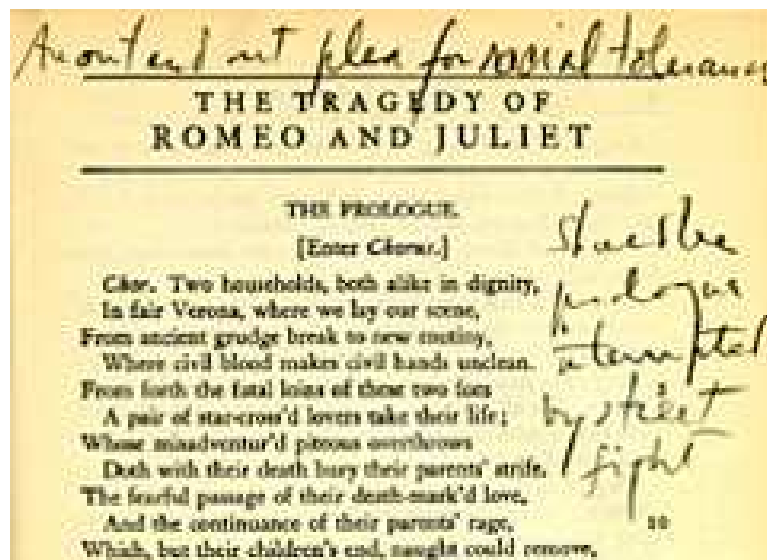 An out and out plea for racial tolerance
THE TRAGEDY OF
ROMEO AND JULIET
THE PROLOGUE.
[Enter Chorus.]
Chor. Two households, both alike in dignity,
In fair Verona, where we lay our scene,
From ancient grudge break to new mutiny,
Where civil blood makes civil hands unclean.
From forth the fatal loins of these two foes
A pair of star-cross'd lovers take their life;
Whose misadventur'd piteous overthrows
Doth with their death bury their parents' strife.
The fearful passage of their death-mark'd love,
And the continuance of their parents' rage, 10
Which, but their children's end, naught could remove,
prologue
interrupted
by street
fight